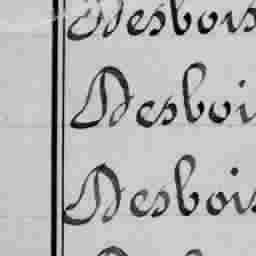 Desbois
Desboi
Desbois